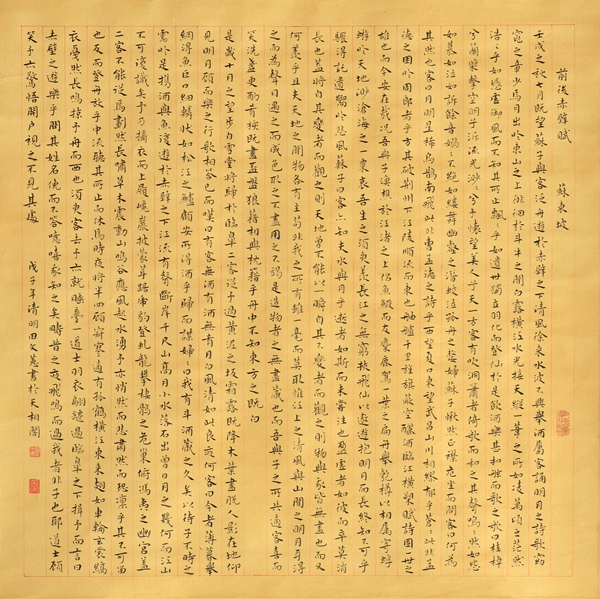 前後赤壁賦　蘇東坡
壬戌之秋七月既望蘇子與客泛舟遊於赤壁之下清風徐來水波不興舉酒屬客誦明月之詩歌窈
窕之章少焉月出於東山之上徘徊於斗牛之間白露橫江水光接天縱一葦之所如凌萬頃之茫然
浩浩乎如馮虛御風而不知其所止飄飄乎如遺世獨立羽化而登仙於是飲酒樂甚扣舷而歌之歌曰桂棹
兮蘭槳擊空明兮泝流光渺渺兮予懷望美人兮天一方客有吹洞簫者倚歌而和之其聲嗚嗚然如怨
如慕如泣如訴餘音嫋嫋不絕如縷舞幽壑之潛蛟泣孤舟之嫠婦蘇子愀然正襟危坐而問客曰何為
其然也客曰月明星稀烏鵲南飛此非曹孟德之詩乎西望夏口東望武昌山川相繆鬱乎蒼蒼此非孟
德之困於周郎者乎方其破荊州下江陵順流而東也舳艫千里旌旗蔽空釃酒臨江橫槊賦詩固一世之
雄也而今安在哉況吾與子漁樵於江渚之上侶魚蝦而友麋鹿駕一葉之扁舟舉匏樽以相屬寄蜉
蝣於天地渺滄海之一粟哀吾生之須臾羨長江之無窮挾飛仙以遨遊抱明月而長終知不可乎
驟得託遺響於悲風蘇子曰客亦知夫水與月乎逝者如斯而未嘗往也盈虛者如彼而卒莫消
長也蓋將自其變者而觀之則天地曾不能以一瞬自其不變者而觀之則物與我皆無盡也而又
何羨乎且夫天地之間物各有主苟非我之所有雖一毫而莫取惟江上之清風與山間之明月耳得
之而為聲目遇之而成色取之不盡用之不竭是造物者之無盡藏也而吾與子之所共適客喜而
笑洗盞更酌肴核既盡杯盤狼藉相與枕藉乎舟中不知東方之既白
是歲十月之望步自雪堂將歸於臨皋二客從予過黃泥之坂霜露既降木葉盡脫人影在地仰
見明月顧而樂之行歌相答已而嘆曰有客無酒有酒無肴月白風清如此良夜何客曰今者薄暮舉
網得魚巨口細鱗狀如松江之鱸顧安所得酒乎歸而謀諸婦婦曰我有斗酒藏之久矣以待子不時之
需於是攜酒與魚復遊於赤壁之下江流有聲斷岸千尺山高月小水落石出曾日月之幾何而江山
不可復識矣予乃攝衣而上履巉巖披蒙茸踞虎豹登虬龍攀棲鶻之危巢俯馮夷之幽宮蓋
二客不能從焉劃然長嘯草木震動山鳴谷應風起水湧予亦悄然而悲肅然而恐凜乎其不可留
也反而登舟放乎中流聽其所止而休焉時夜將半四顧寂寥適有孤鶴橫江東來翅如車輪玄裳縞
衣戛然長鳴掠予舟而西也須臾客去予亦就睡夢一道士羽衣翩躚過臨皋之下揖予而言曰
赤壁之遊樂乎問其姓名俛而不答嗚呼噫嘻我知之矣疇昔之夜飛鳴而過我者非子也耶道士顧
笑予亦驚悟開戶視之不見其處
戊子年清明田文蕙書於天相閣